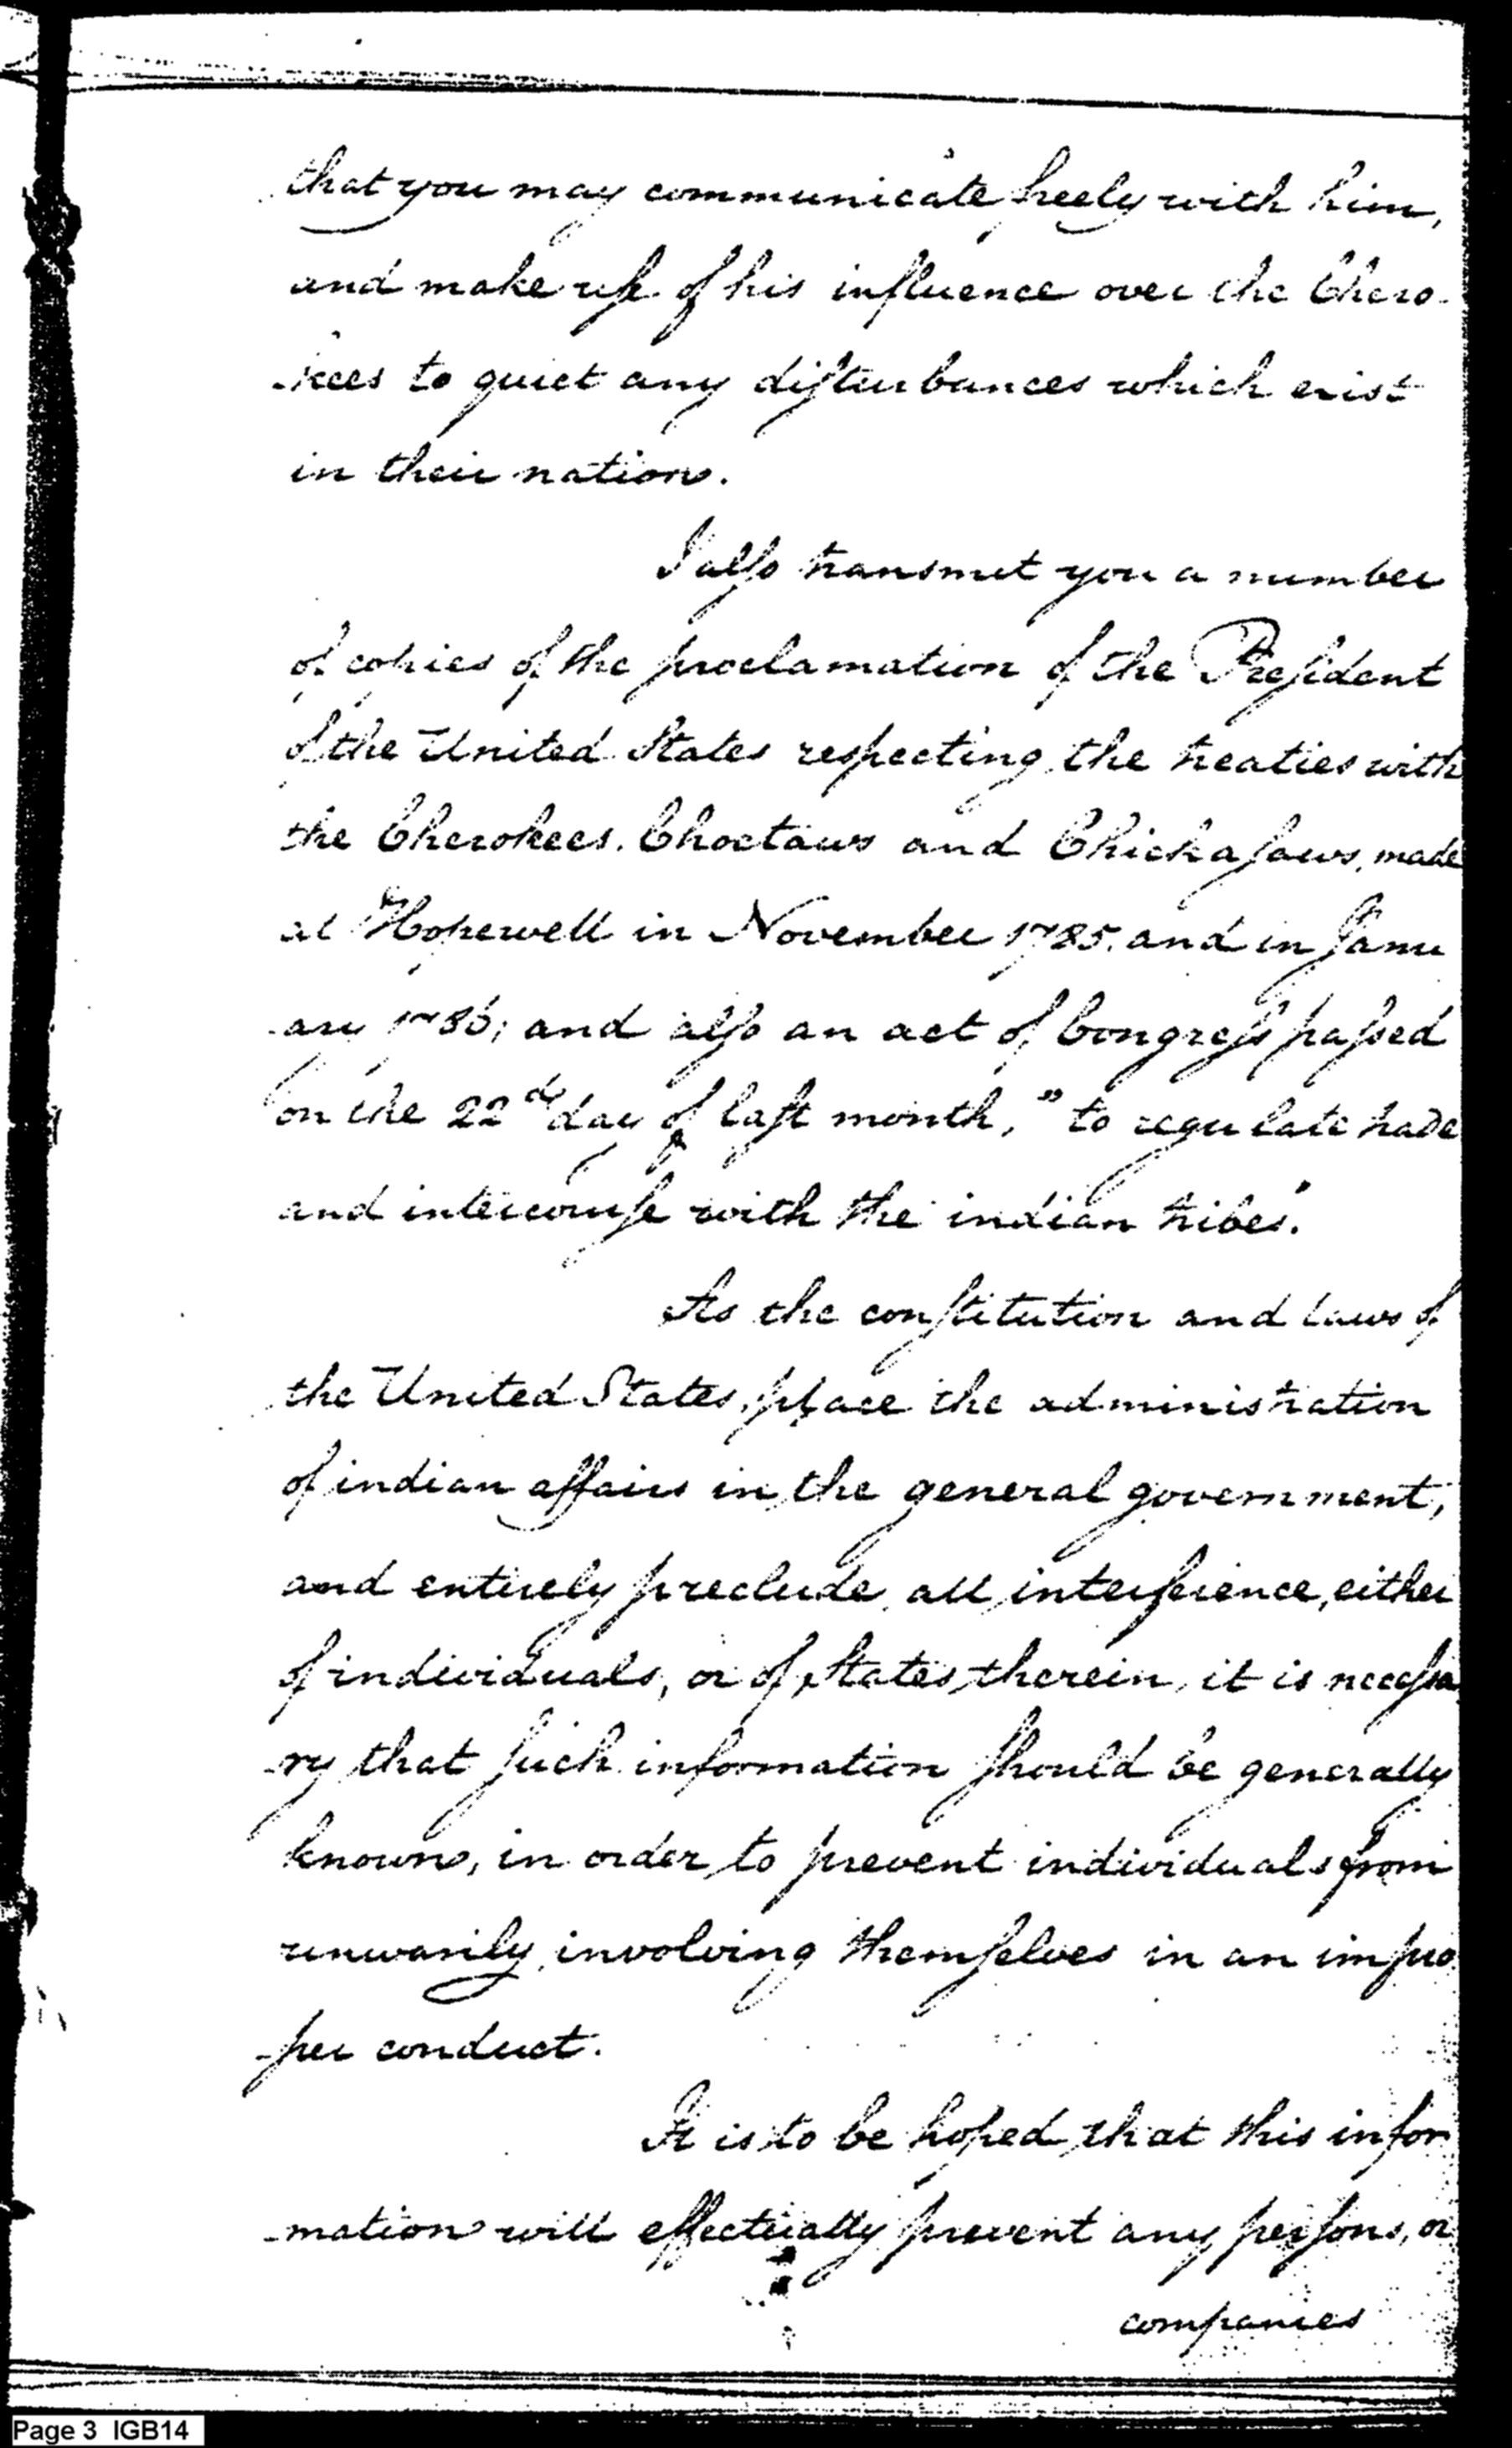 that you may communicate freely with him,
and make use of his influence over the Chero-
-kees to quiet any disturbances which exist
in their nation.
I also transmit you a number
of copies of the proclamation of the President
of the United States respecting the treaties with
the Cherokees. Choctaws and Chickasaws, made
at Hopewell in November 1785. and in Janu
-ary 1786; and also an act of Congress passed
on the 22d day of last month, "to regulate trade
and intercourse with the indian tribes".
As the constitution and laws of
the United States, place the administration
of indian affairs in the general government,
and entirely preclude all interference, either
of individuals, or of States, therein, it is necessa
-ry that such information should be generally
known, in order to prevent individuals from
unwarily, involving themselves in an impro
-per conduct.
It is to be hoped that this infor
-mation will effectually prevent any persons, or
companies
Page 3 IGB14